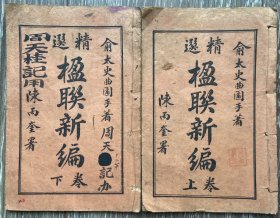 精選
俞太史曲園手著
楹聯新編
卷上
陳丙奎署
精選
俞太史曲園手著
周天
記办
楹聯新編
卷下
周天桂記用
陳丙奎署